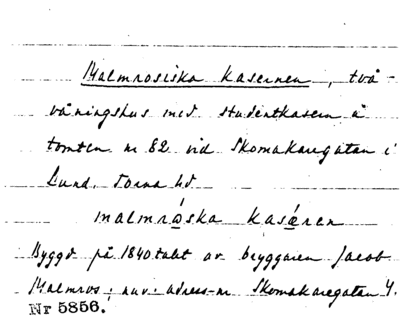 Malmrosiska kasernen, två-
våningshus med studentkasern å
tomten nr 82 vid Skomakaregatan i
Lund. Torna hd
malmrǿska kasǽren
Byggd på 1840 talet av bryggaren Jacob
Malmros; nuv. adress-nr Skomakaregatan 4.
Nr 5856.